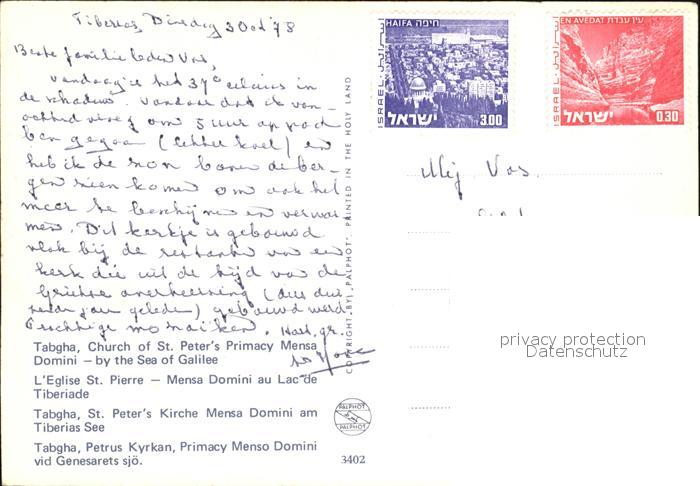 Tiberias Dinsdag 3 Oct '78
Beste familieleden Vos,
Vandaag is het 37° celsius in
de schaduw. Vandaar dat ik van-
ochtend vroeg om 5 uur op pad
ben gegaan (lekker koel) en
heb ik de zon boven de ber-
gen zien komen om ook het
meer te beschijnen en verwar-
men. Dit kerkje is gebouwd
vlak bij de restanten van een
kerk die uit de tijd van de
Griekse overheersing (dus dui-
zenden jaren geleden) gebouwd werd
Prachtige mozaïken. Hart. gr.
Tabgha, Church of St. Peter's Primacy Mensa
Domini – by the Sea of Galilee
L'Eglise St. Pierre — Mensa Domini au Lac de
Tiberiade
Tabgha, St. Peter's Kirche Mensa Domini am
Tiberias See
Tabgha, Petrus Kyrkan, Primacy Menso Domini
vid Genesarets sjö.
COPYRIGHT BY: PALPHOT. PRINTED IN THE HOLY LAND
PALPHOT
PALPHOT
3402
HAIFA חיפה
ISRAEL
ישראל
3.00
EN AVEDAT עין עבדת
ISRAEL
ישראל
0.30
Mej Vos.
privacy protection
Datenschutz